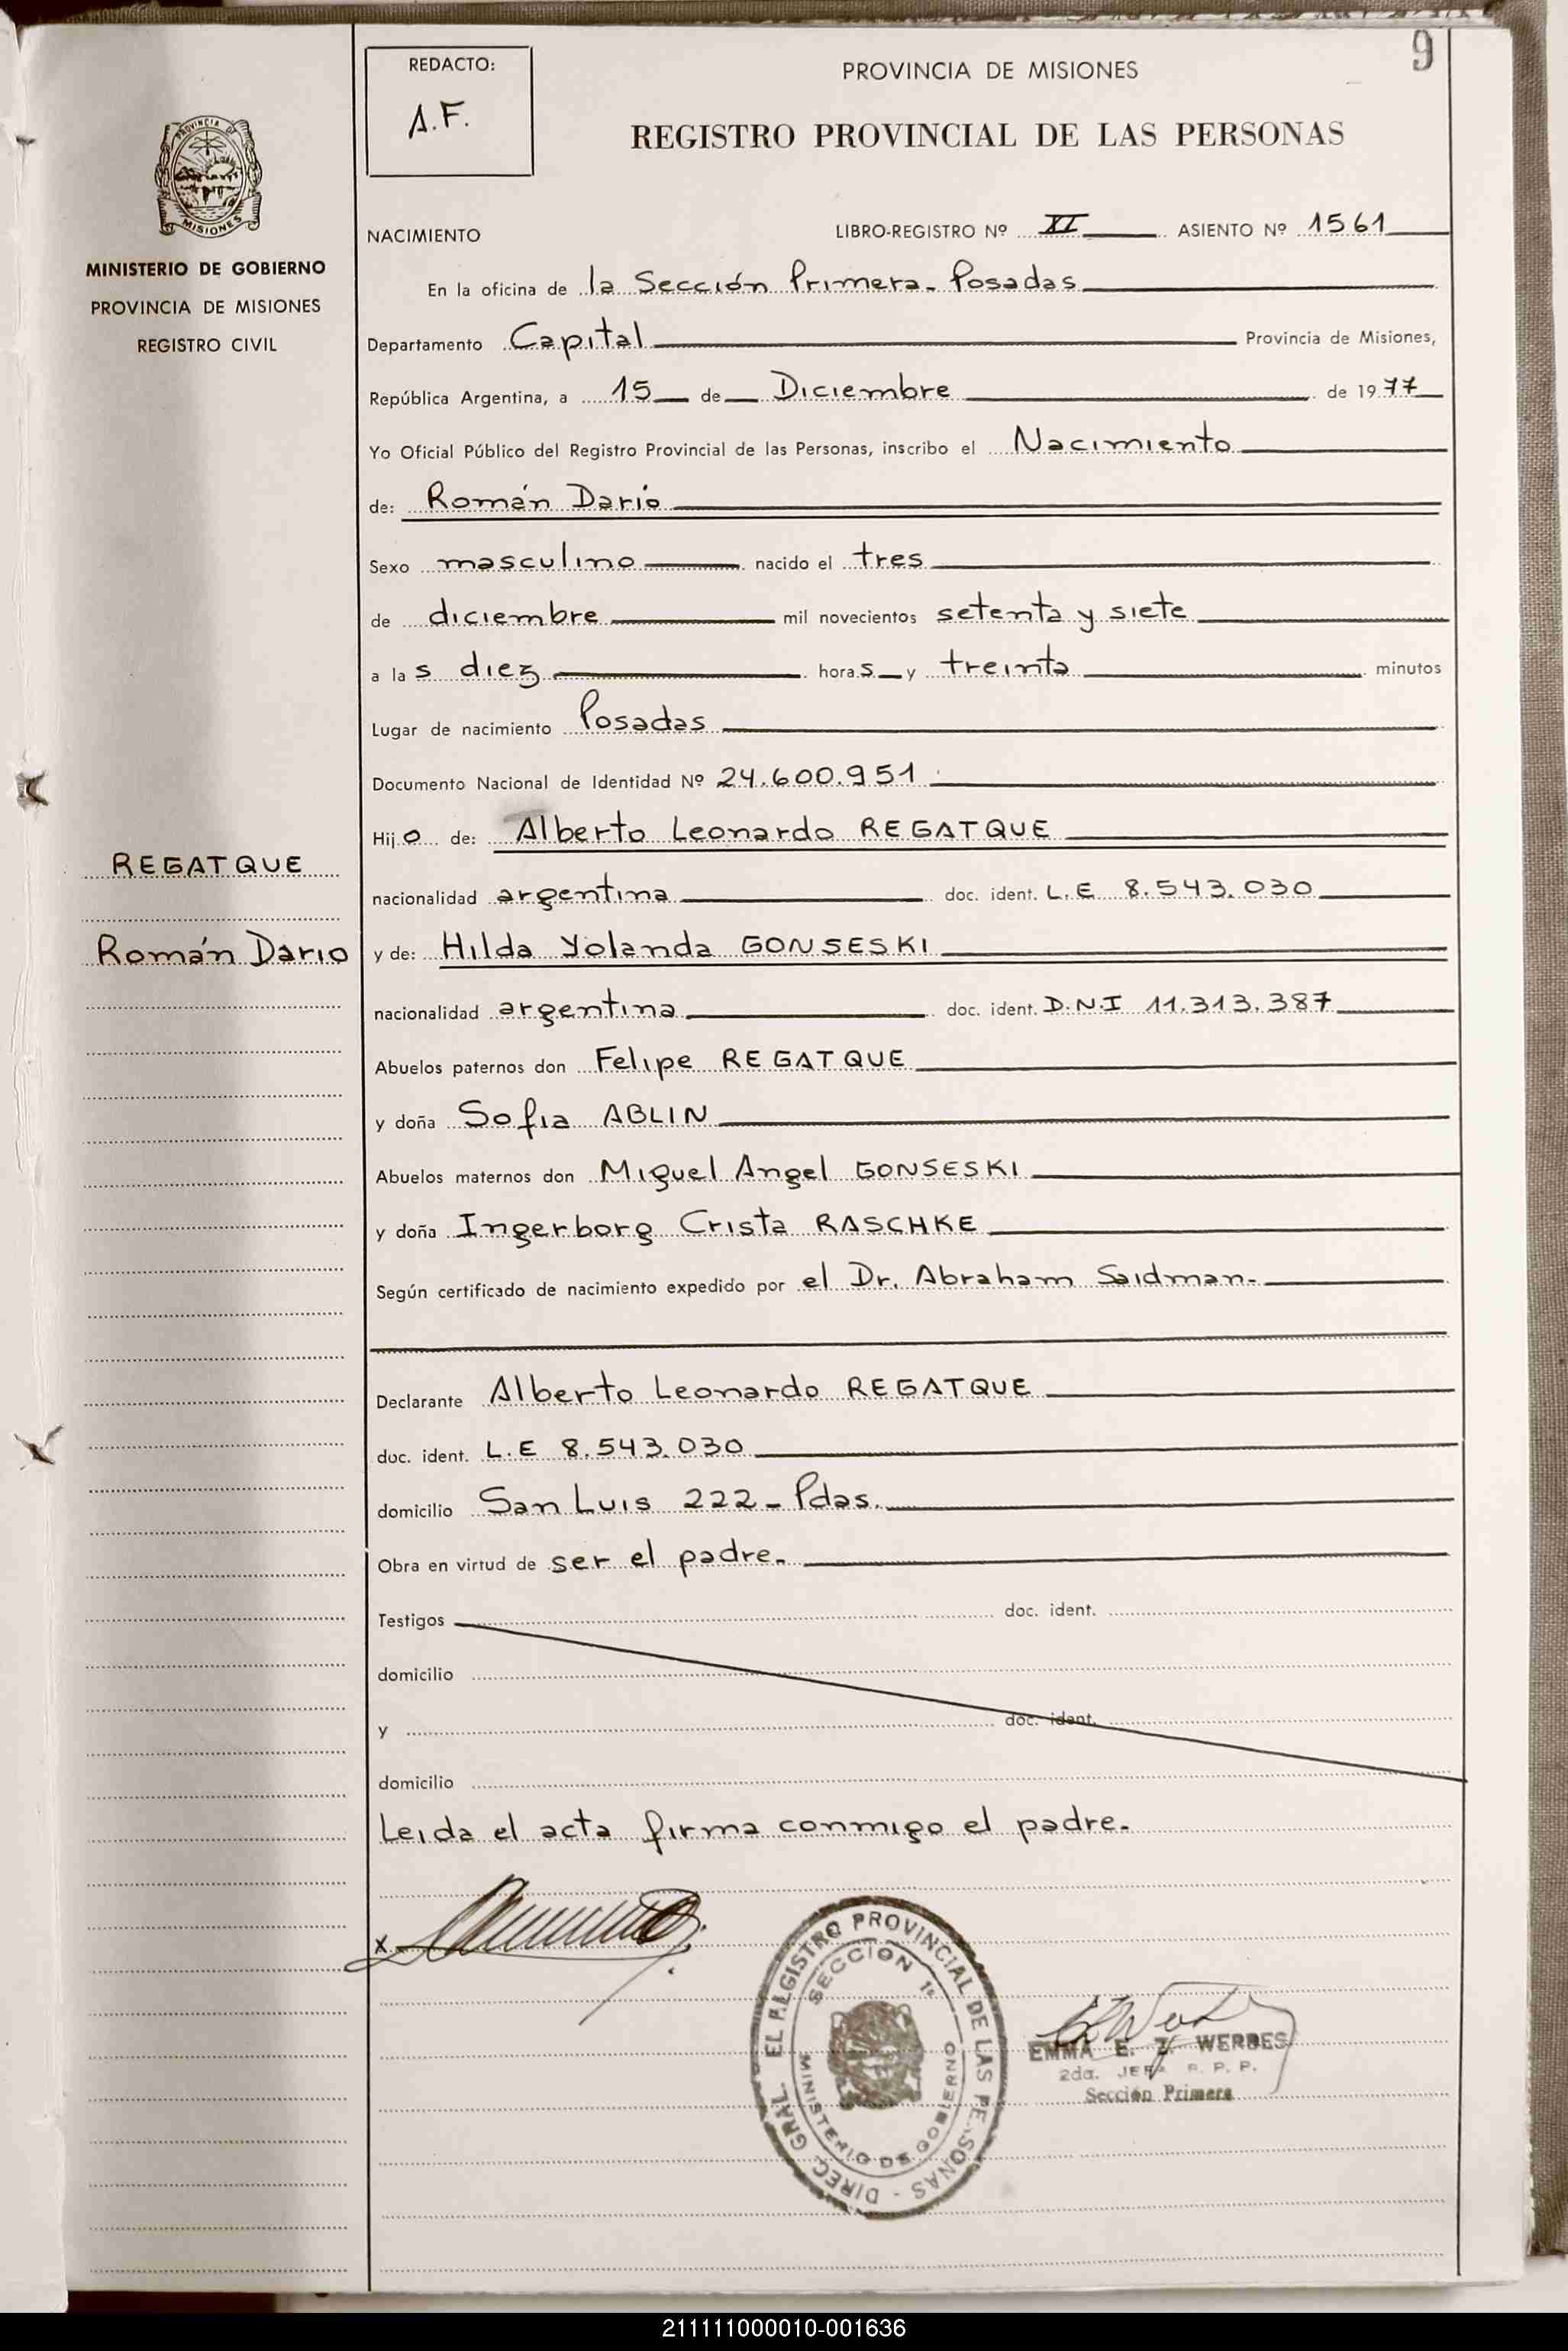 9
REDACTO:
A.F.
PROVINCIA DE MISIONES
REGISTRO PROVINCIAL DE LAS PERSONAS
PROVINCIA DE
MISIONES
MINISTERIO DE GOBIERNO
PROVINCIA DE MISIONES
REGISTRO CIVIL
NACIMIENTO LIBRO-REGISTRO Nº XI ASIENTO Nº 1561
En la oficina de la Sección Primera - Posadas
Departamento Capital Provincia de Misiones,
República Argentina, a 15 de Diciembre de 1977
Yo Oficial Público del Registro Provincial de las Personas, inscribo el Nacimiento
de: Román Dario
Sexo masculino nacido el tres
de diciembre mil novecientos setenta y siete
a las diez horas y treinta minutos
Lugar de nacimiento Posadas
Documento Nacional de Identidad Nº 24.600.951
Hijo de: Alberto Leonardo REGATQUE
REGATQUE
nacionalidad argentina doc. ident. L.E 8.543.030
Román Dario
y de: Hilda Yolanda GONSESKI
nacionalidad argentina doc. ident. D.N.I 11.313.387
Abuelos paternos don Felipe REGATQUE
y doña Sofia ABLIN
Abuelos maternos don Miguel Angel GONSESKI
y doña Ingerborg Crista RASCHKE
Según certificado de nacimiento expedido por el Dr. Abraham Saidman.
Declarante Alberto Leonardo REGATQUE
doc. ident. L.E 8.543.030
domicilio San Luis 222 - Pdas.
Obra en virtud de ser el padre.
Testigos doc. ident.
domicilio
y doc. ident.
domicilio
Leida el acta firma conmigo el padre.
x
DIREC. GRAL. EL REGISTRO PROVINCIAL DE LAS PERSONAS -
SECCION 1ª
MINISTERIO DE GOBIERNO
EMMA E. Z. WERBES
2da. JEFA R. P. P.
Sección Primera
211111000010-001636